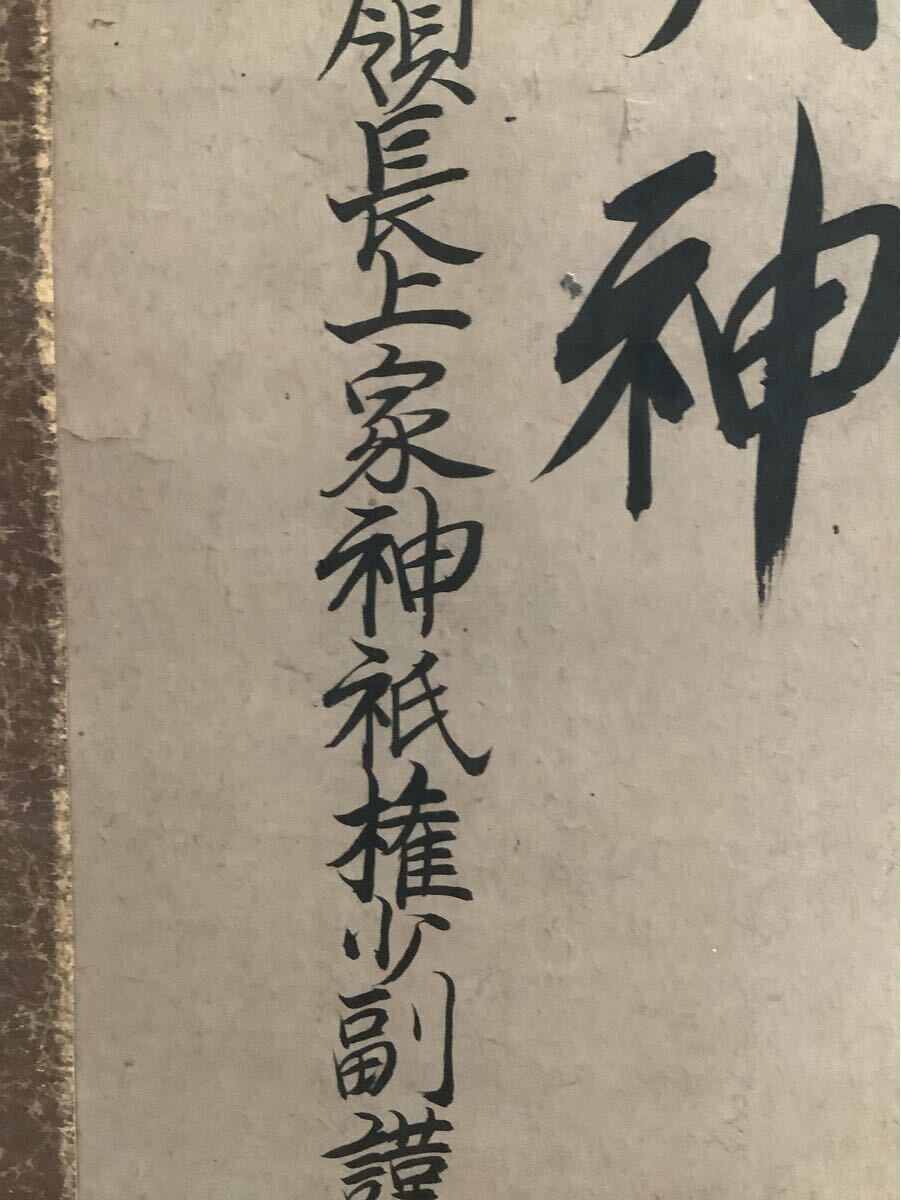 神
領長上家神祇権少副謹